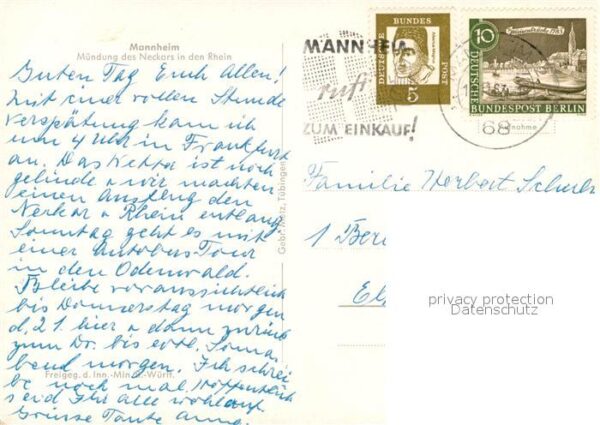 Mannheim
Mündung des Neckars in den Rhein
Guten Tag Euch Allen!
Mit einer vollen Stunde
Verspätung kam ich
um 4 Uhr in Frankfurt
an. Das Wetter ist noch
gelinde u. wir machten
einen Ausflug den
Neckar u. Rhein entlang
Sonntag geht es mit
einer Autobus Tour
in den Odenwald.
Bleibe voraussichtlich
bis Donnerstag morgen
d. 21 hier u. dann zurück
zum Dr. bis evtl. Sonna-
bend morgen. Ich schrei-
be noch mal. Hoffentlich
seid Ihr alle wohlauf.
Grüsse Tante Anna
Freigeg. d. Inn.-Min.
Württ.
Gebr. Metz, Tübingen
MANNHEIM
ruft
ZUM EINKAUF!
DEUTSCHE
BUNDES
POST
5
10
DEUTSCHE
BUNDESPOST BERLIN
68
Familie Herbert Schulz
1 Ber
privacy protection
Datenschutz